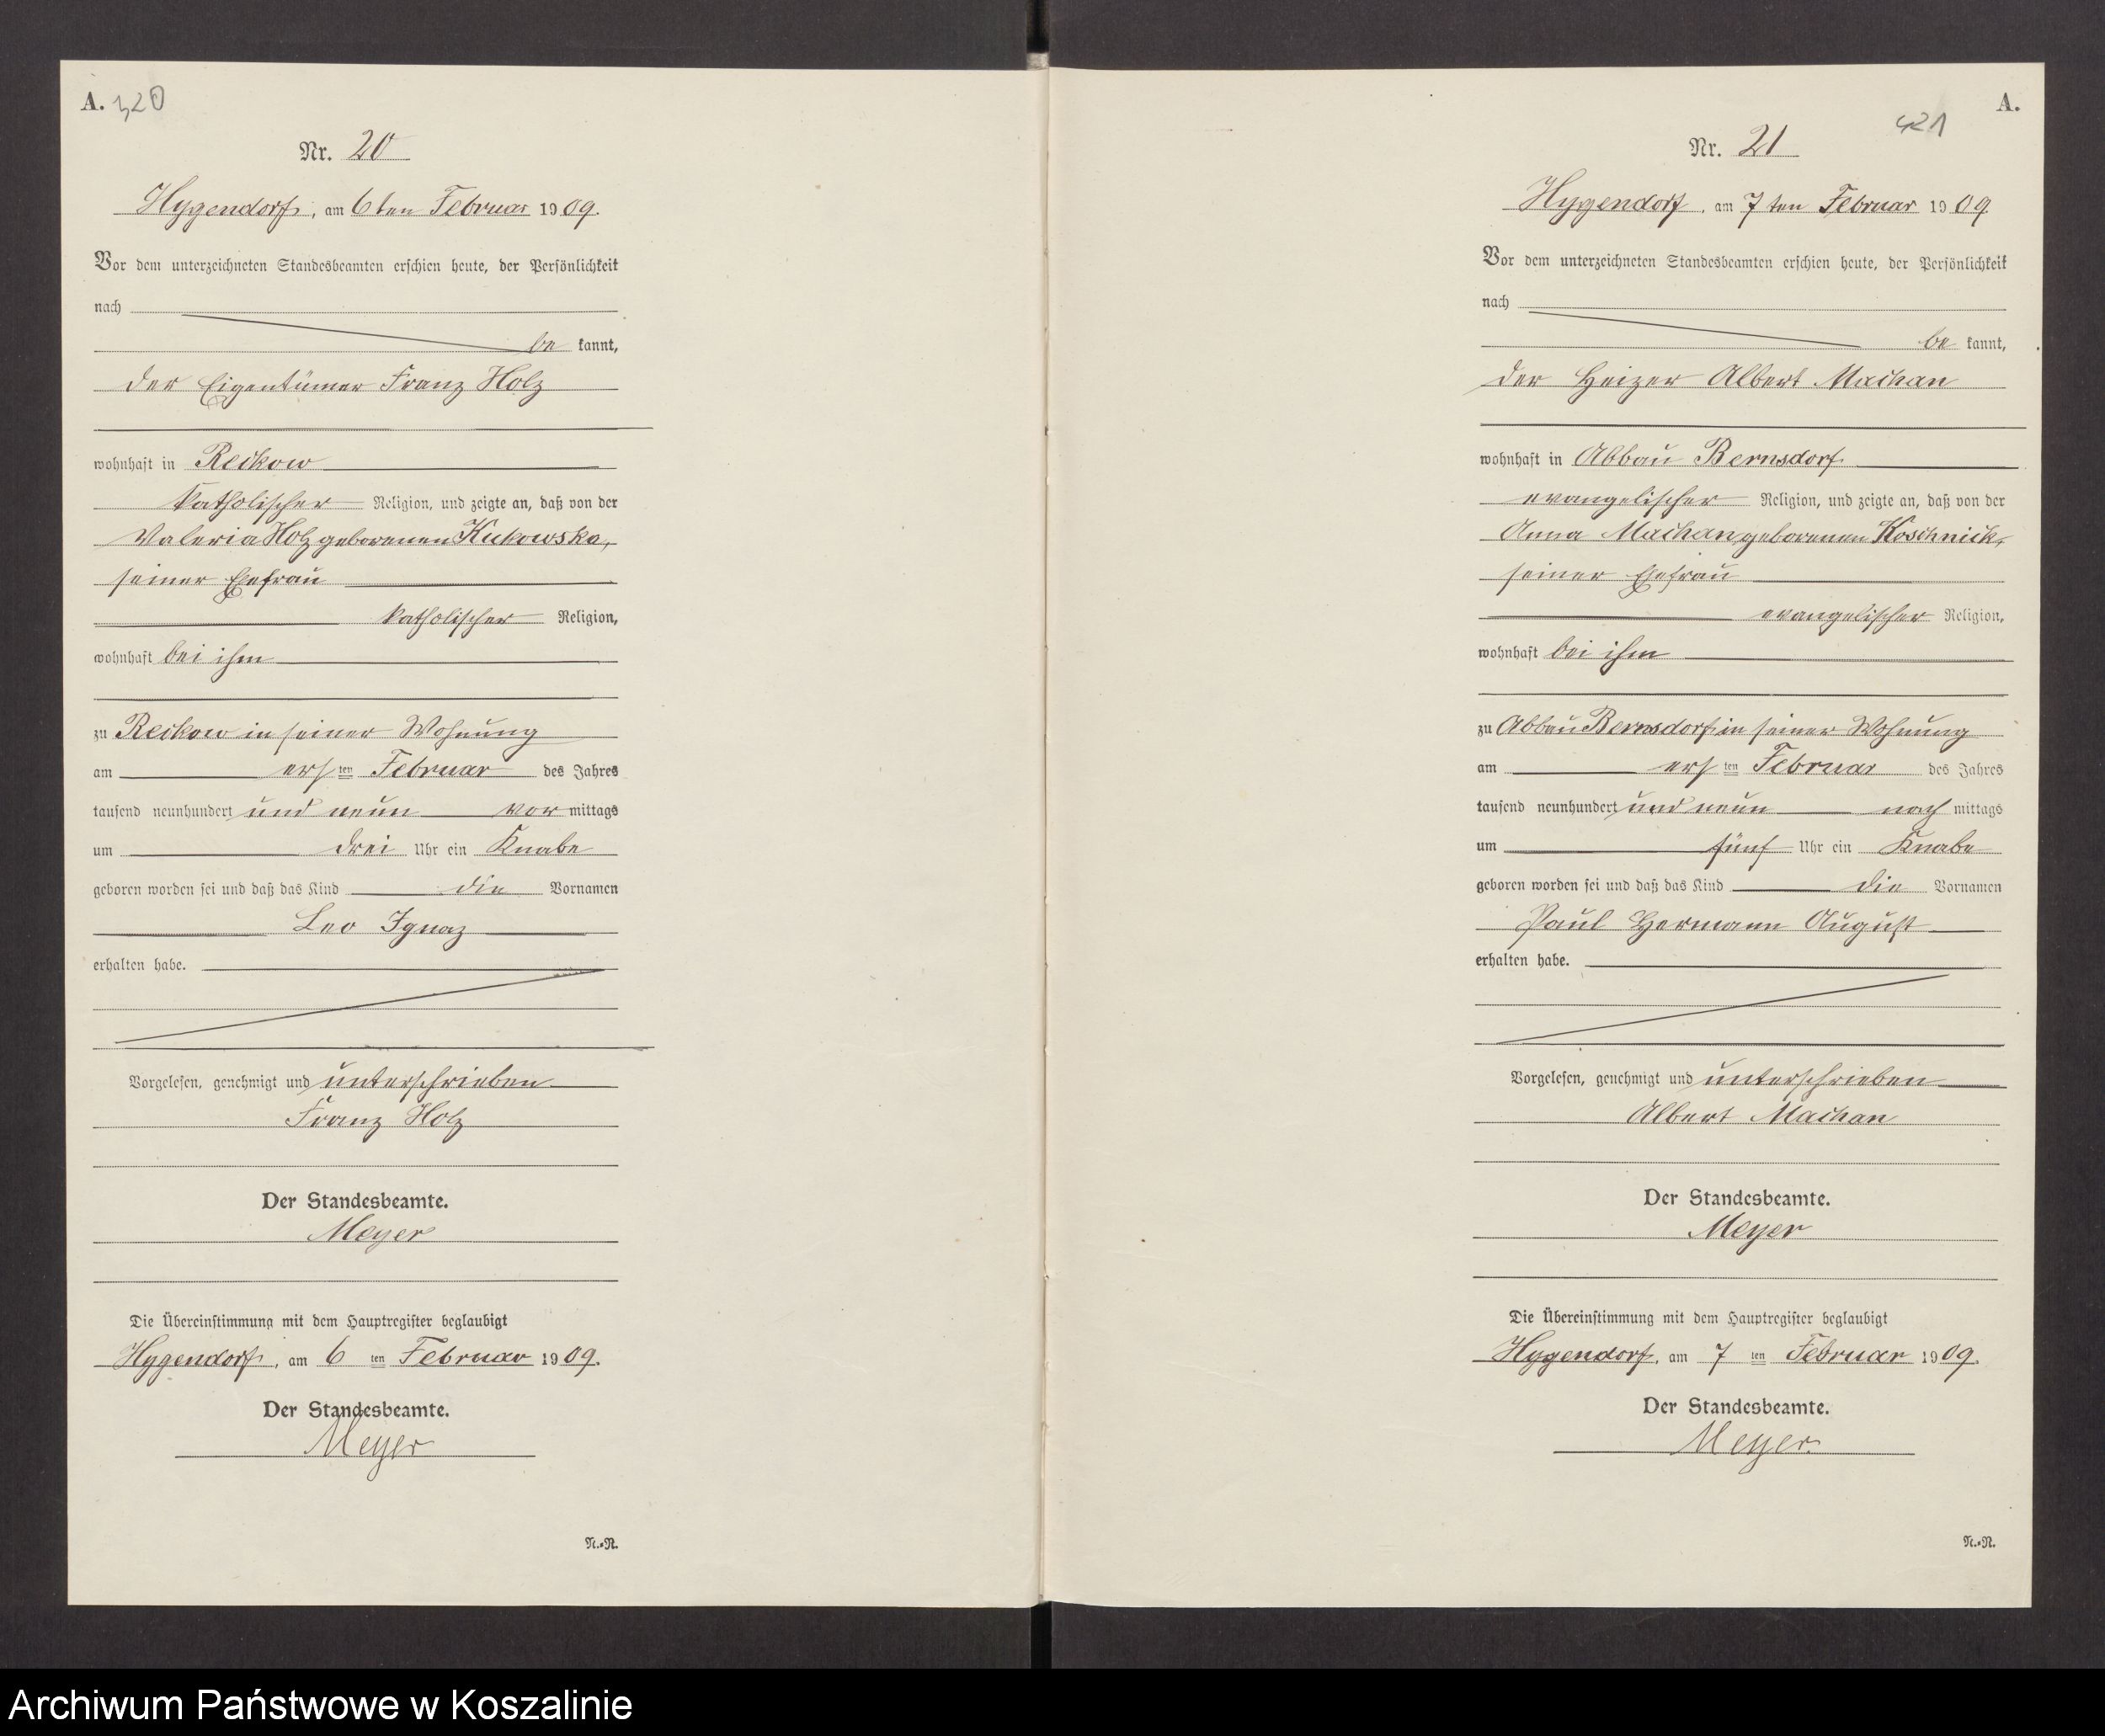 A. 320
Nr. 20
Hygendorf, am 6ten Februar 1909.
Vor dem unterzeichneten Standesbeamten erschien heute, der Persönlichkeit
nach
be kannt,
der Eigentümer Franz Holz
wohnhaft in Reckow
katholischer Religion, und zeigte an, daß von der
Valeria Holz geborenen Kukowska,
seiner Ehefrau
katholischer Religion,
wohnhaft bei ihm
zu Reckow in seiner Wohnung
am ersten Februar des Jahres
tausend neunhundert und neun vor mittags
um drei Uhr ein Knabe
geboren worden sei und daß das Kind die Vornamen
Leo Ignaz
erhalten habe.
Vorgelesen, genehmigt und unterschrieben
Franz Holz
Der Standesbeamte.
Meyer
Die Übereinstimmung mit dem Hauptregister beglaubigt
Hygendorf, am 6 ten Februar 1909.
Der Standesbeamte.
Meyer
N.-N.
A.
421
Nr. 21
Hygendorf, am 7ten Februar 1909
Vor dem unterzeichneten Standesbeamten erschien heute, der Persönlichkeit
nach
be kannt,
der Heizer Albert Machan
wohnhaft in Abbau Bernsdorf
evangelischer Religion, und zeigte an, daß von der
Anna Machan geborenen Koschnick,
seiner Ehefrau
evangelischer Religion,
wohnhaft bei ihm
zu Abbau Bernsdorf in seiner Wohnung
am ersten Februar des Jahres
tausend neunhundert und neun nach mittags
um fünf Uhr ein Knabe
geboren worden sei und daß das Kind die Vornamen
Paul Hermann August
erhalten habe.
Vorgelesen, genehmigt und unterschrieben
Albert Machan
Der Standesbeamte.
Meyer
Die Übereinstimmung mit dem Hauptregister beglaubigt
Hygendorf, am 7 ten Februar 1909.
Der Standesbeamte.
Meyer.
N.-N.
Archiwum Państwowe w Koszalinie